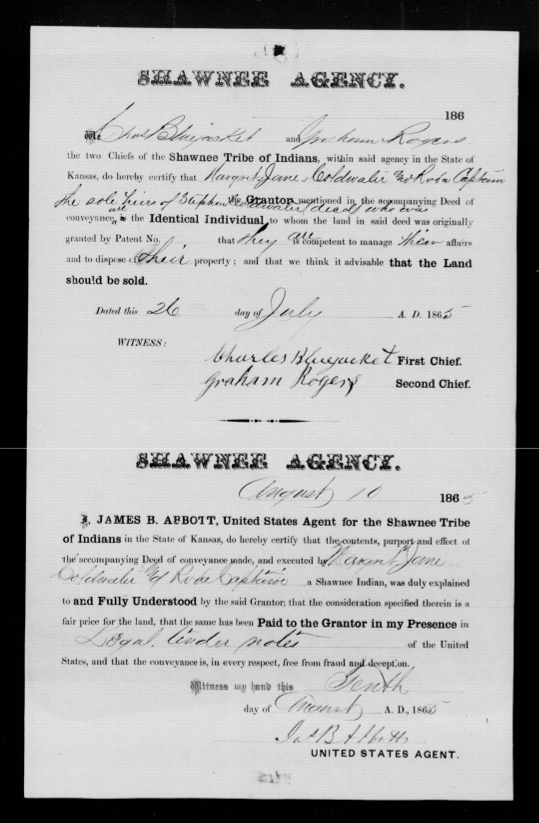 SHAWNEE AGENCY.
186
We Chas Bluejacket and Graham Rogers
the two Chiefs of the Shawnee Tribe of Indians, within said agency in the State of
Kansas, do hereby certify that Margret Jane Coldwater Captain
the sole heirs of Stephen Coldwater (dead) who was
the Grantor mentioned in the accompanying Deed of
conveyance, are is the Identical Individual to whom the land in said deed was originally
granted by Patent No. that they are is competent to manage their affairs
and to dispose of their property; and that we think it advisable that the Land
should be sold.
Dated this 26 day of July A. D. 1865
WITNESS:
Charles Bluejacket First Chief.
Graham Rogers Second Chief.
SHAWNEE AGENCY.
August 10 1865
I, JAMES B. ABBOTT, United States Agent for the Shawnee Tribe
of Indians in the State of Kansas, do hereby certify that the contents, purport and effect of
the accompanying Deed of conveyance made, and executed by Margret Jane
Coldwater Captain a Shawnee Indian, was duly explained
to and Fully Understood by the said Grantor; that the consideration specified therein is a
fair price for the land, that the same has been Paid to the Grantor in my Presence in
Legal tender notes of the United
States, and that the conveyance is, in every respect, free from fraud and deception.
Witness my hand this Tenth
day of August A. D., 1865
Jas B Abbott
UNITED STATES AGENT.